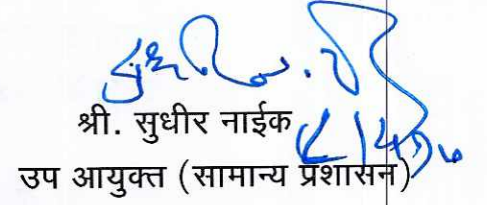 श्री. सुधीर नाईक
उप आयुक्त (सामान्य प्रशासन)